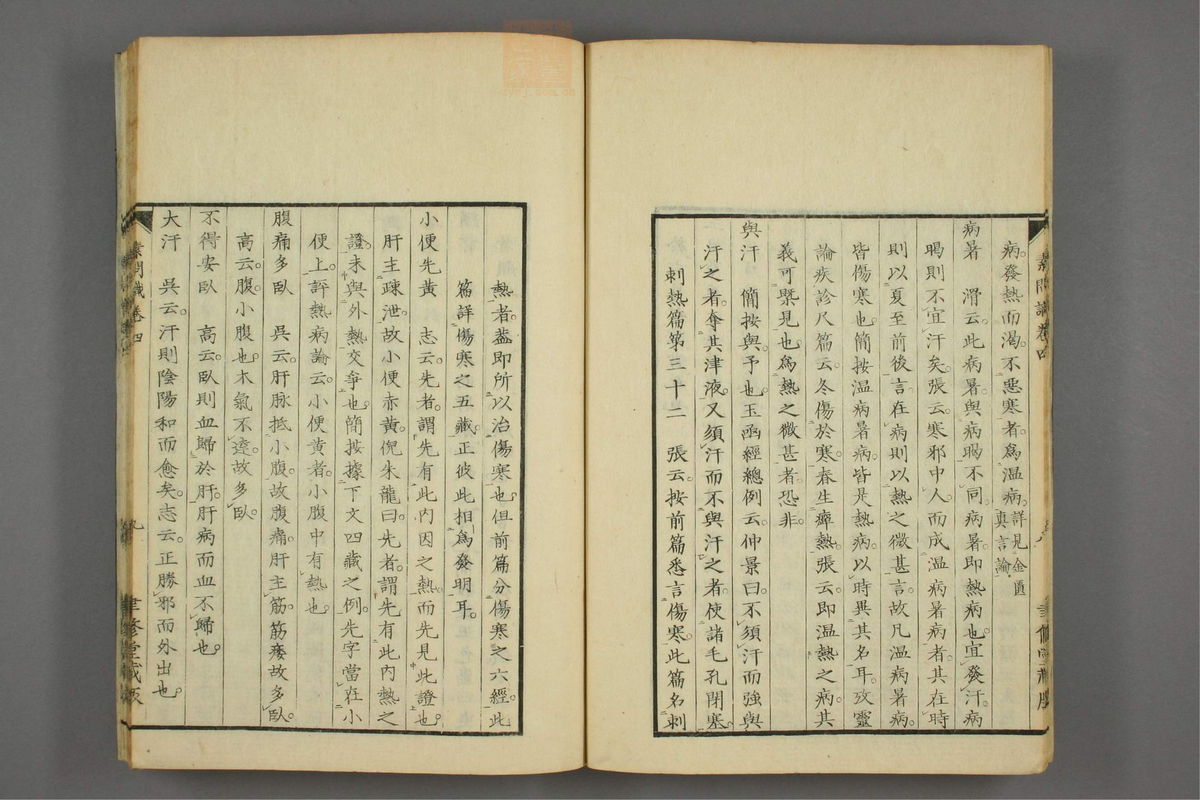 病發熱而渴不惡寒者為溫病詳見金匱真言論
病暑　滑云此病暑與病暍不同病暑即熱病也宜發汗病
暍則不宜汗矣張云寒邪中人而成溫病暑病者其在時
則以夏至前後言在病則以熱之微甚言故凡溫病暑病
皆傷寒也簡按溫病暑病皆是熱病以時異其名耳攷靈
論疾診尺篇云冬傷於寒春生癉熱張云即溫熱之病其
義可槩見也為熱之微甚者恐非
與汗　簡按與予也玉函經總例云仲景曰不須汗而強與
汗之者奪其津液又須汗而不與汗之者使諸毛孔閉塞
刺熱篇第三十二　張云按前篇悉言傷寒此篇名刺
素問識卷四
熱者蓋即所以治傷寒也但前篇分傷寒之六經此
篇詳傷寒之五藏正彼此相為發明耳
小便先黃　志云先者謂先有此內因之熱而先見此證也
肝主疎泄故小便赤黃倪朱龍曰先者謂先有此內熱之
證未與外熱交爭也簡按據下文四藏之例先字當在小
便上評熱病論云小便黃者小腹中有熱也
腹痛多臥　吳云肝脉抵小腹故腹痛肝主筋筋痿故多臥
高云腹小腹也木氣不達故多臥
不得安臥　高云臥則血歸於肝肝病而血不歸也
大汗　吳云汗則陰陽和而愈矣志云正勝邪而外出也
素問識卷四　九　聿修堂藏版